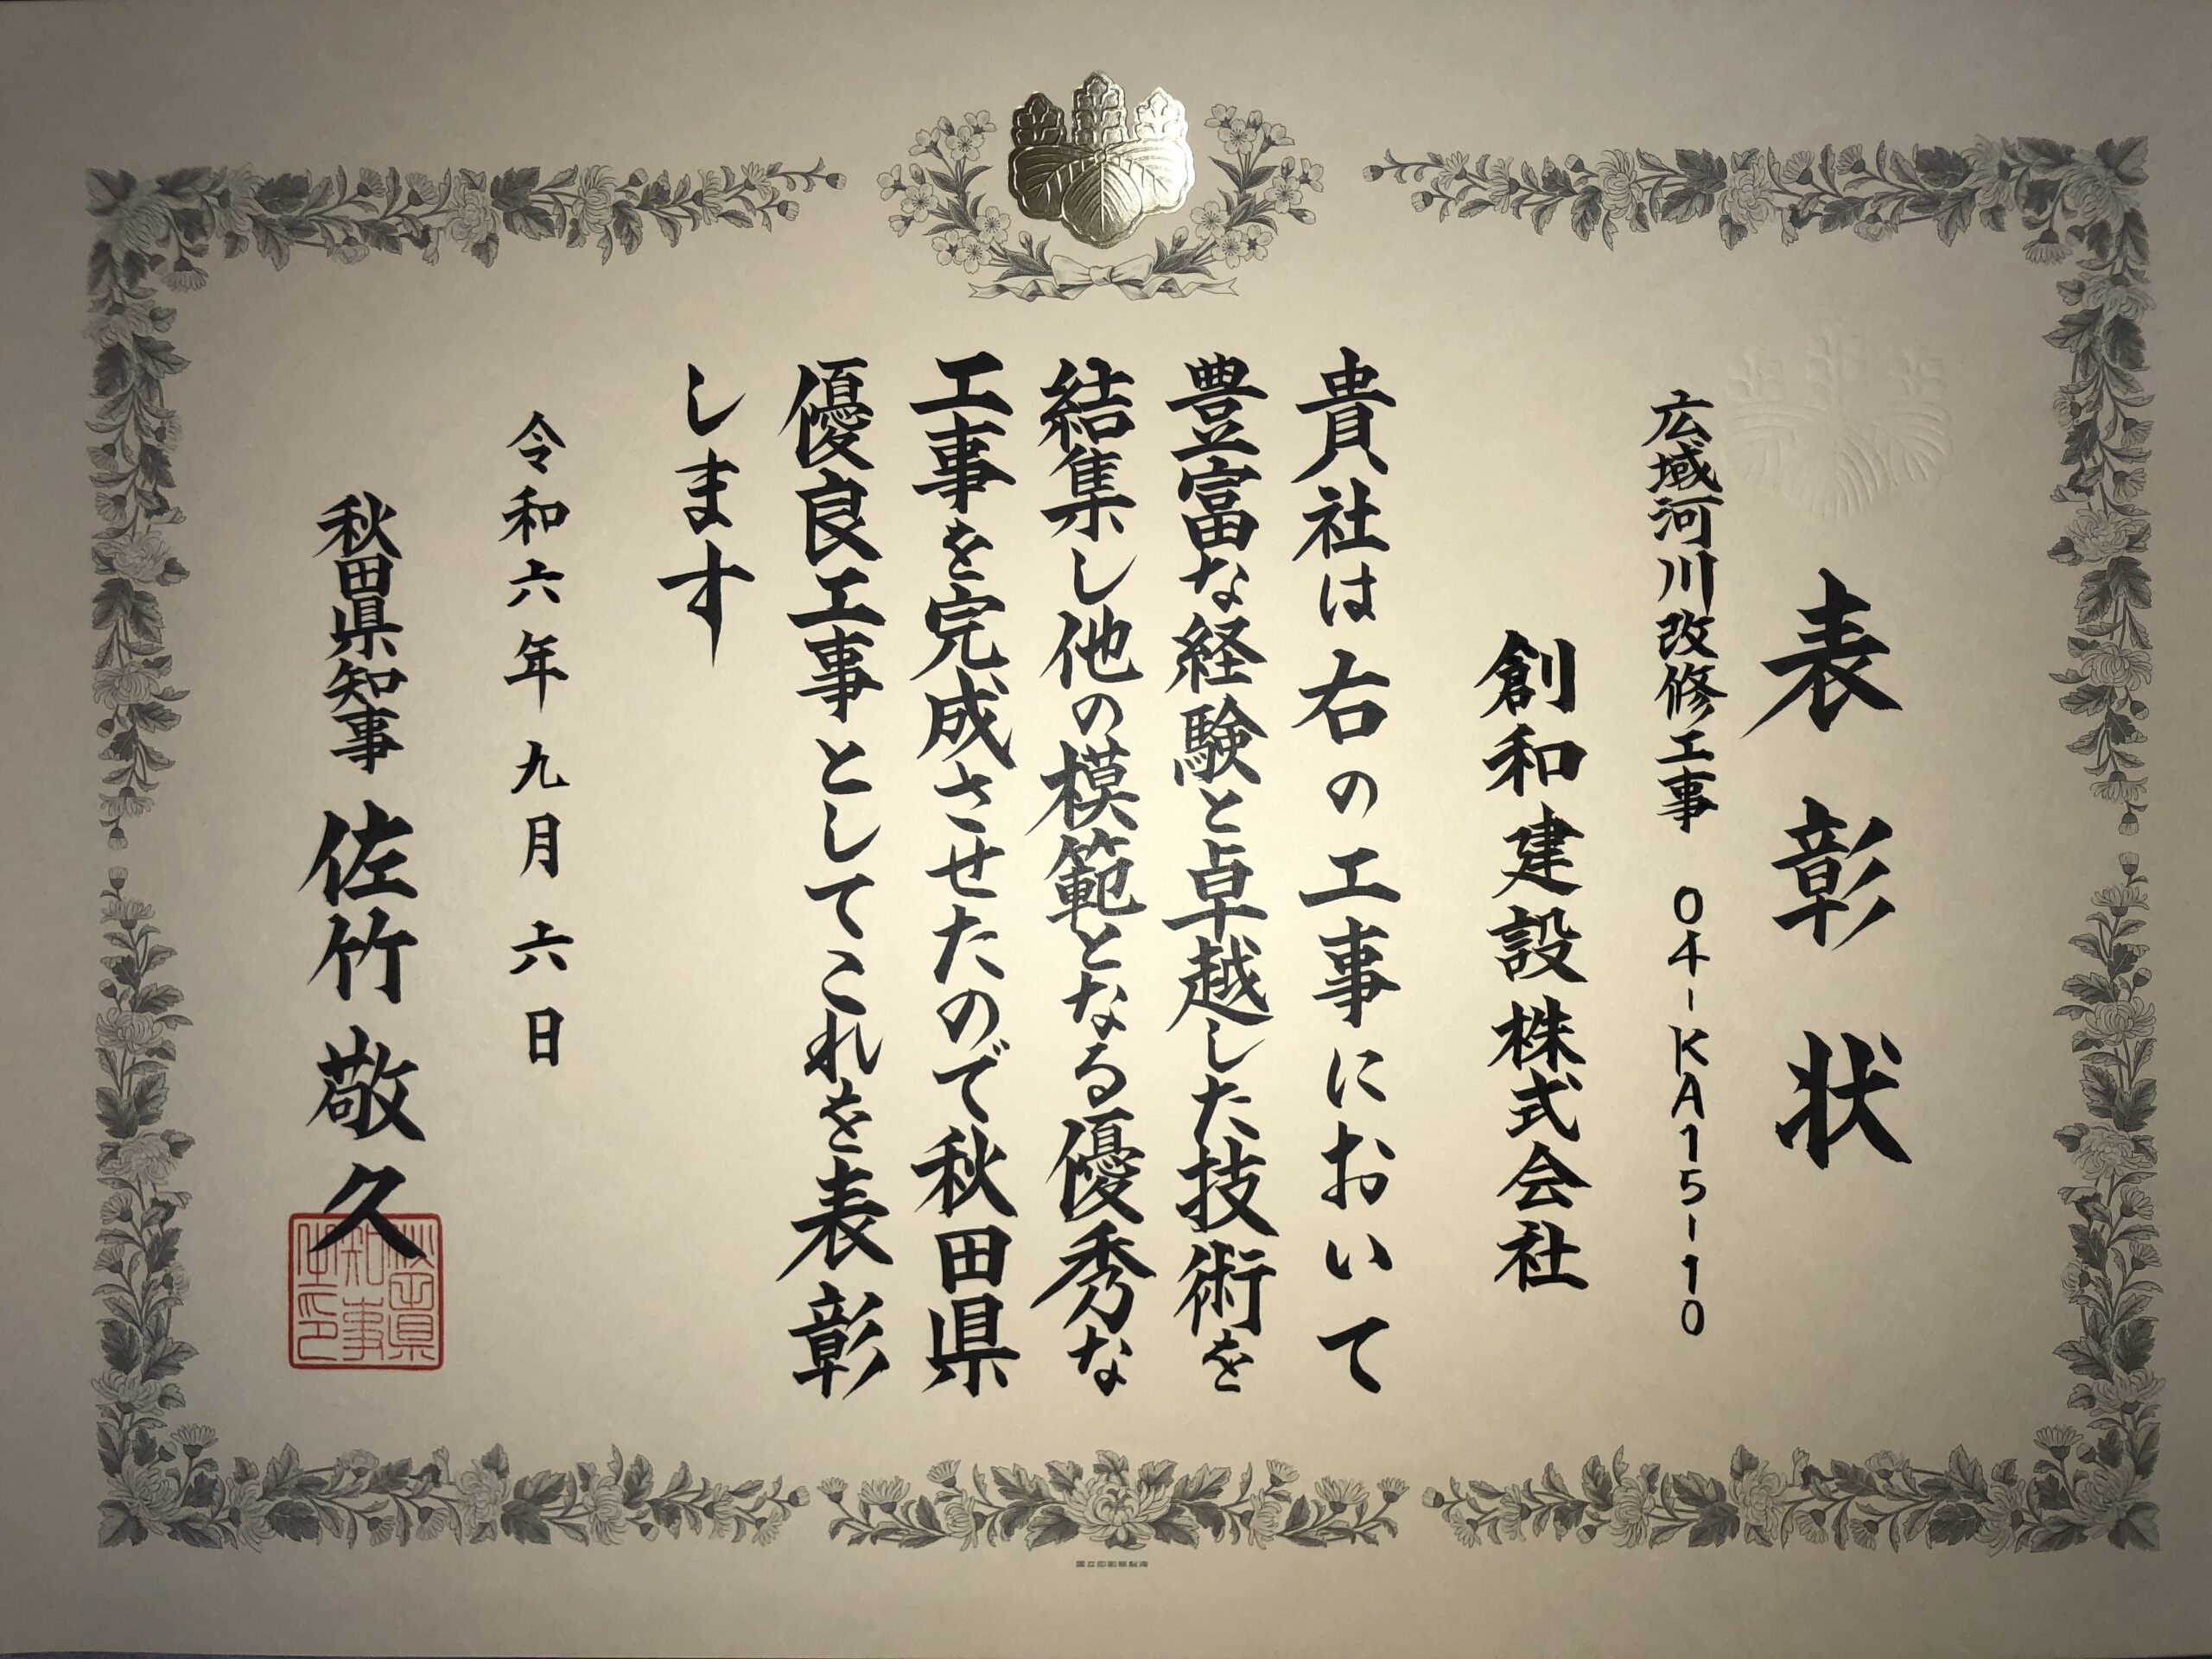 表彰状
広域河川改修工事 04-KA15-10
創和建設株式会社
貴社は右の工事において
豊富な経験と卓越した技術を
結集し他の模範となる優秀な
工事を完成させたので秋田県
優良工事としてこれを表彰
します
令和六年九月六日
秋田県知事 佐竹敬久
秋田県
知事
之印
国立印刷局製造